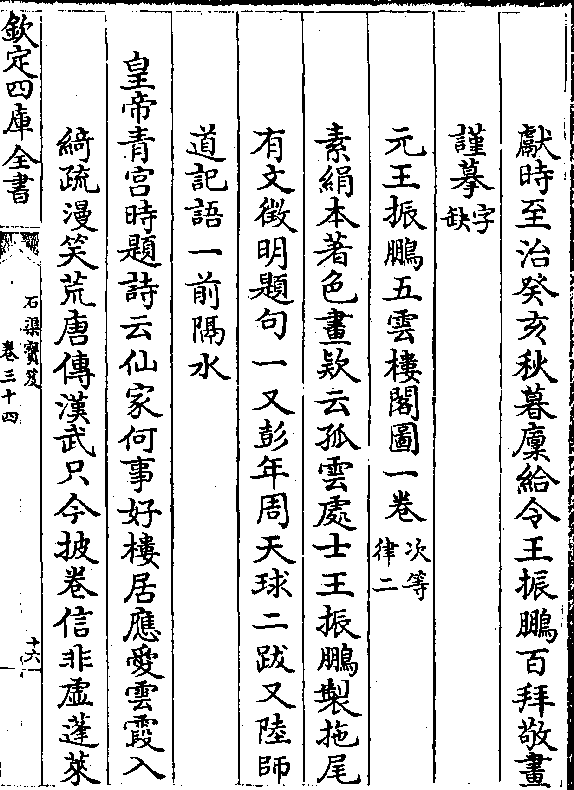 獻時至治癸亥秋暮廩給令王振鵬百拜敬畫
謹摹字缺
元王振鵬五雲樓閣圖一卷次等律二
素絹本著色畫欵云孤雲處士王振鵬製拖尾
有文徵明題句一又彭年周天球二跋又陸師
道記語一前隔水
皇帝青宮時題詩云仙家何事好樓居應愛雲霞入
綺疏漫笑荒唐傳漢武只今披卷信非虛蓬萊
欽定四庫全書
石渠寳笈
卷三十四
十六